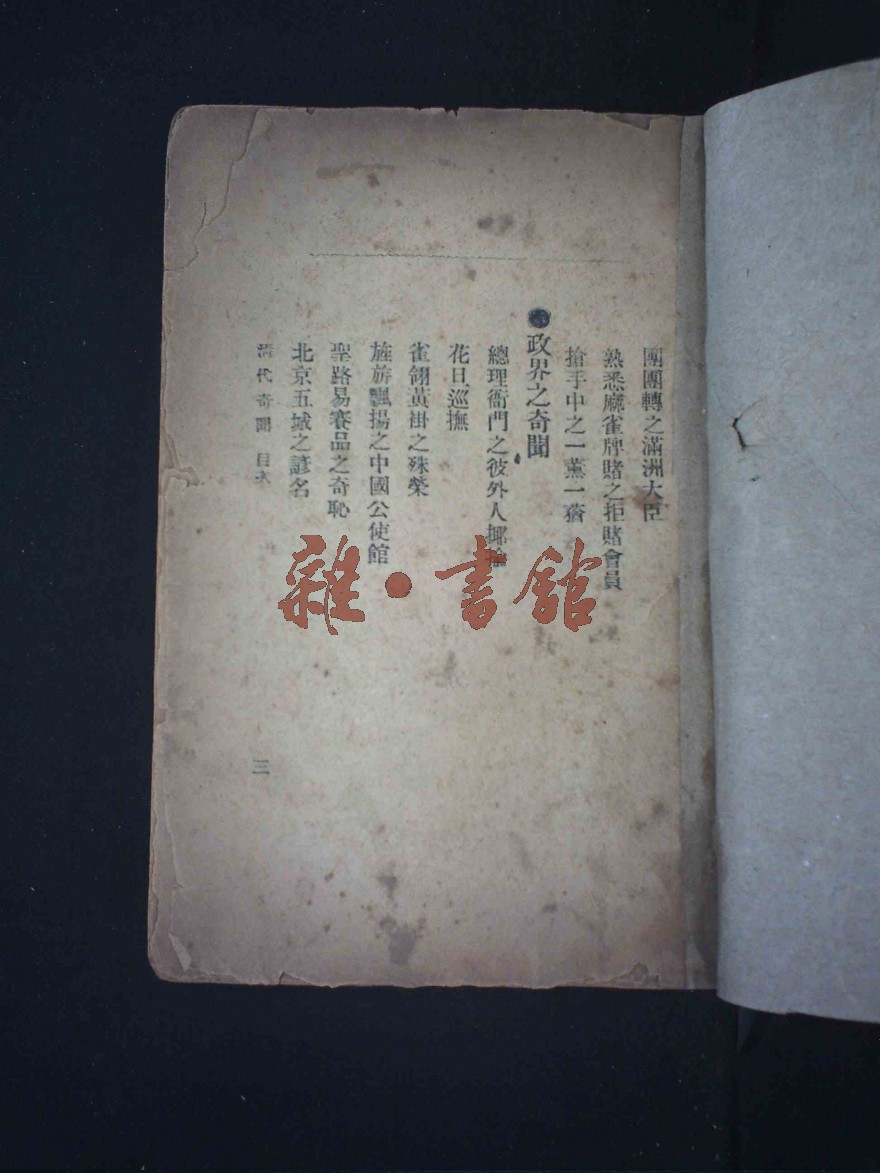 團團轉之滿洲大臣
熟悉麻雀牌賭之拒賭會員
搶手中之一薰一蕕
●政界之奇聞
總理衙門之彼外人揶揄
花旦巡撫
雀翎黃褂之殊榮
旌旂飄揚之中國公使館
聖路易賽品之奇恥
北京五城之諺名
清代奇聞 目次
三
雜·書館